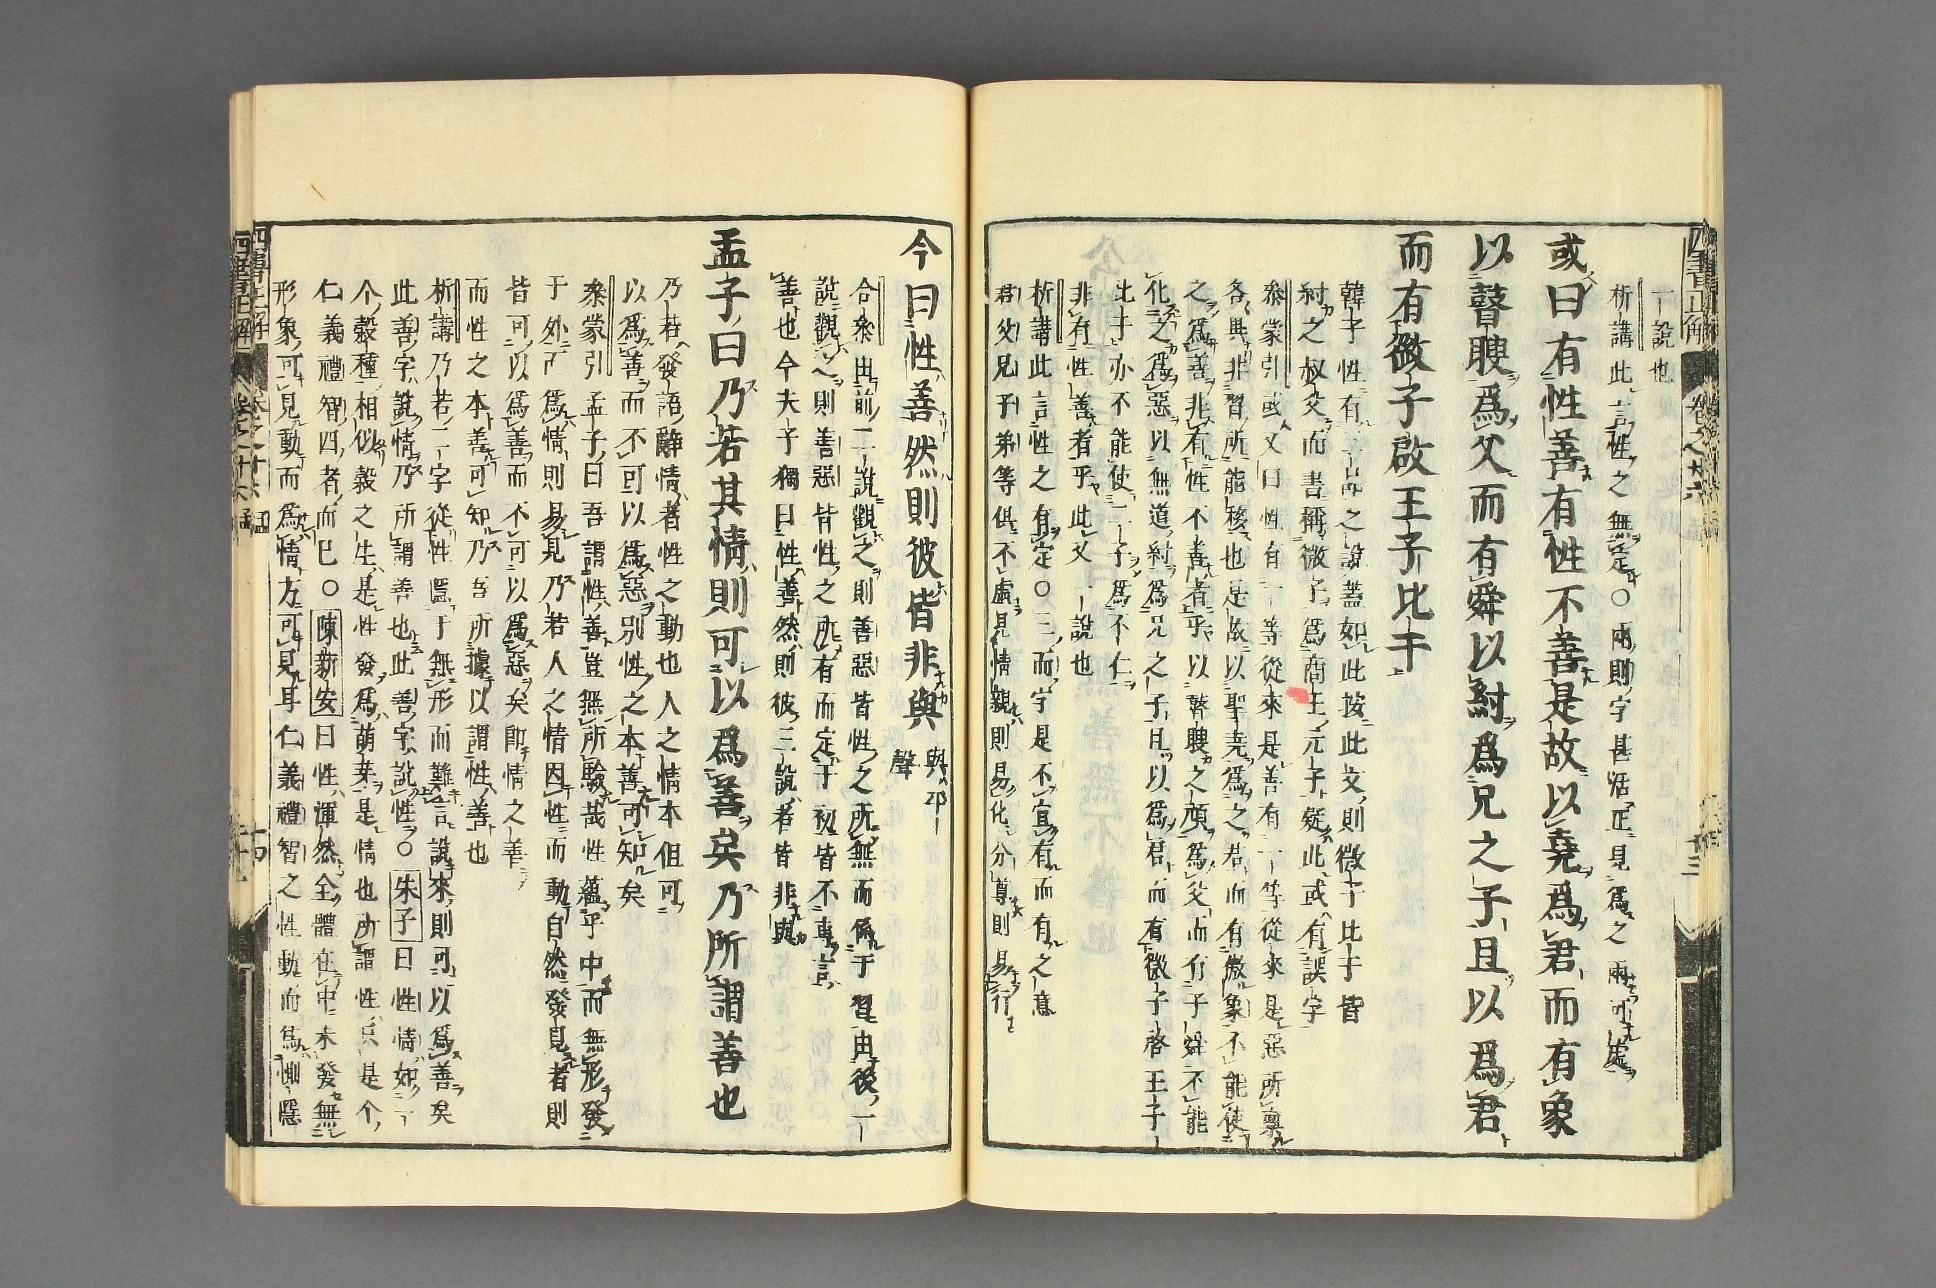 一說也
析講此言性之無定○兩則字甚活正見爲之兩可處
或曰有性善有性不善是故以堯爲君而有象
以瞽瞍爲父而有舜以紂爲兄之子且以爲君
而有微子啟王子比干
韓子性有三品之說蓋如此按此文則微子比干皆
紂之叔父而書稱微子爲商王元子疑此或有誤字
叅蒙引或又曰性有一等從來是善有一等從來是惡所禀
各異非習所能移也是故以聖堯爲之君而有傲象不能使
之爲善非有性不善者乎以瞽瞍之頑爲父而有子舜不能
化之爲惡以無道紂爲兄之子且以爲君而有微子啓王子
比子亦不能使二子爲不仁
非有性善者乎此又一說也
析講此言性之有定○三而字是不宜有而有之意
君父兄子弟等俱不虛見情親則易化分尊則易行
今曰性善然則彼皆非與 與平聲
合叅由前一說觀之則善惡皆性之所無而係于習由後一
說觀之則善惡皆性之所有而定于初皆不專言
善也今夫子獨曰性善然則彼三說者皆非與
孟子曰乃若其情則可以爲善矣乃所謂善也
乃若發語辭情者性之動也人之情本但可
以爲善而不可以爲惡則性之本善可知矣
叅蒙引孟子曰吾謂性善豈無所驗哉性蘊乎中而無形發
于外而爲情則易見乃若人之情因性而動自然發見者則
皆可以爲善而不可以爲惡矣卽情之善
而性之本善可知乃吾所據以謂性善也
析講乃若二字從性隱于無形而難言說來則可以爲善矣
此善字說情乃所謂善也此善字說性○朱子曰性情如一
个穀種相似穀之生是性發爲萌芽是情也所謂性只是个
仁義禮智四者而已○陳新安曰性渾然全體在中未發無
形象可見動而爲情方可見耳仁義禮智之性動而爲惻隱